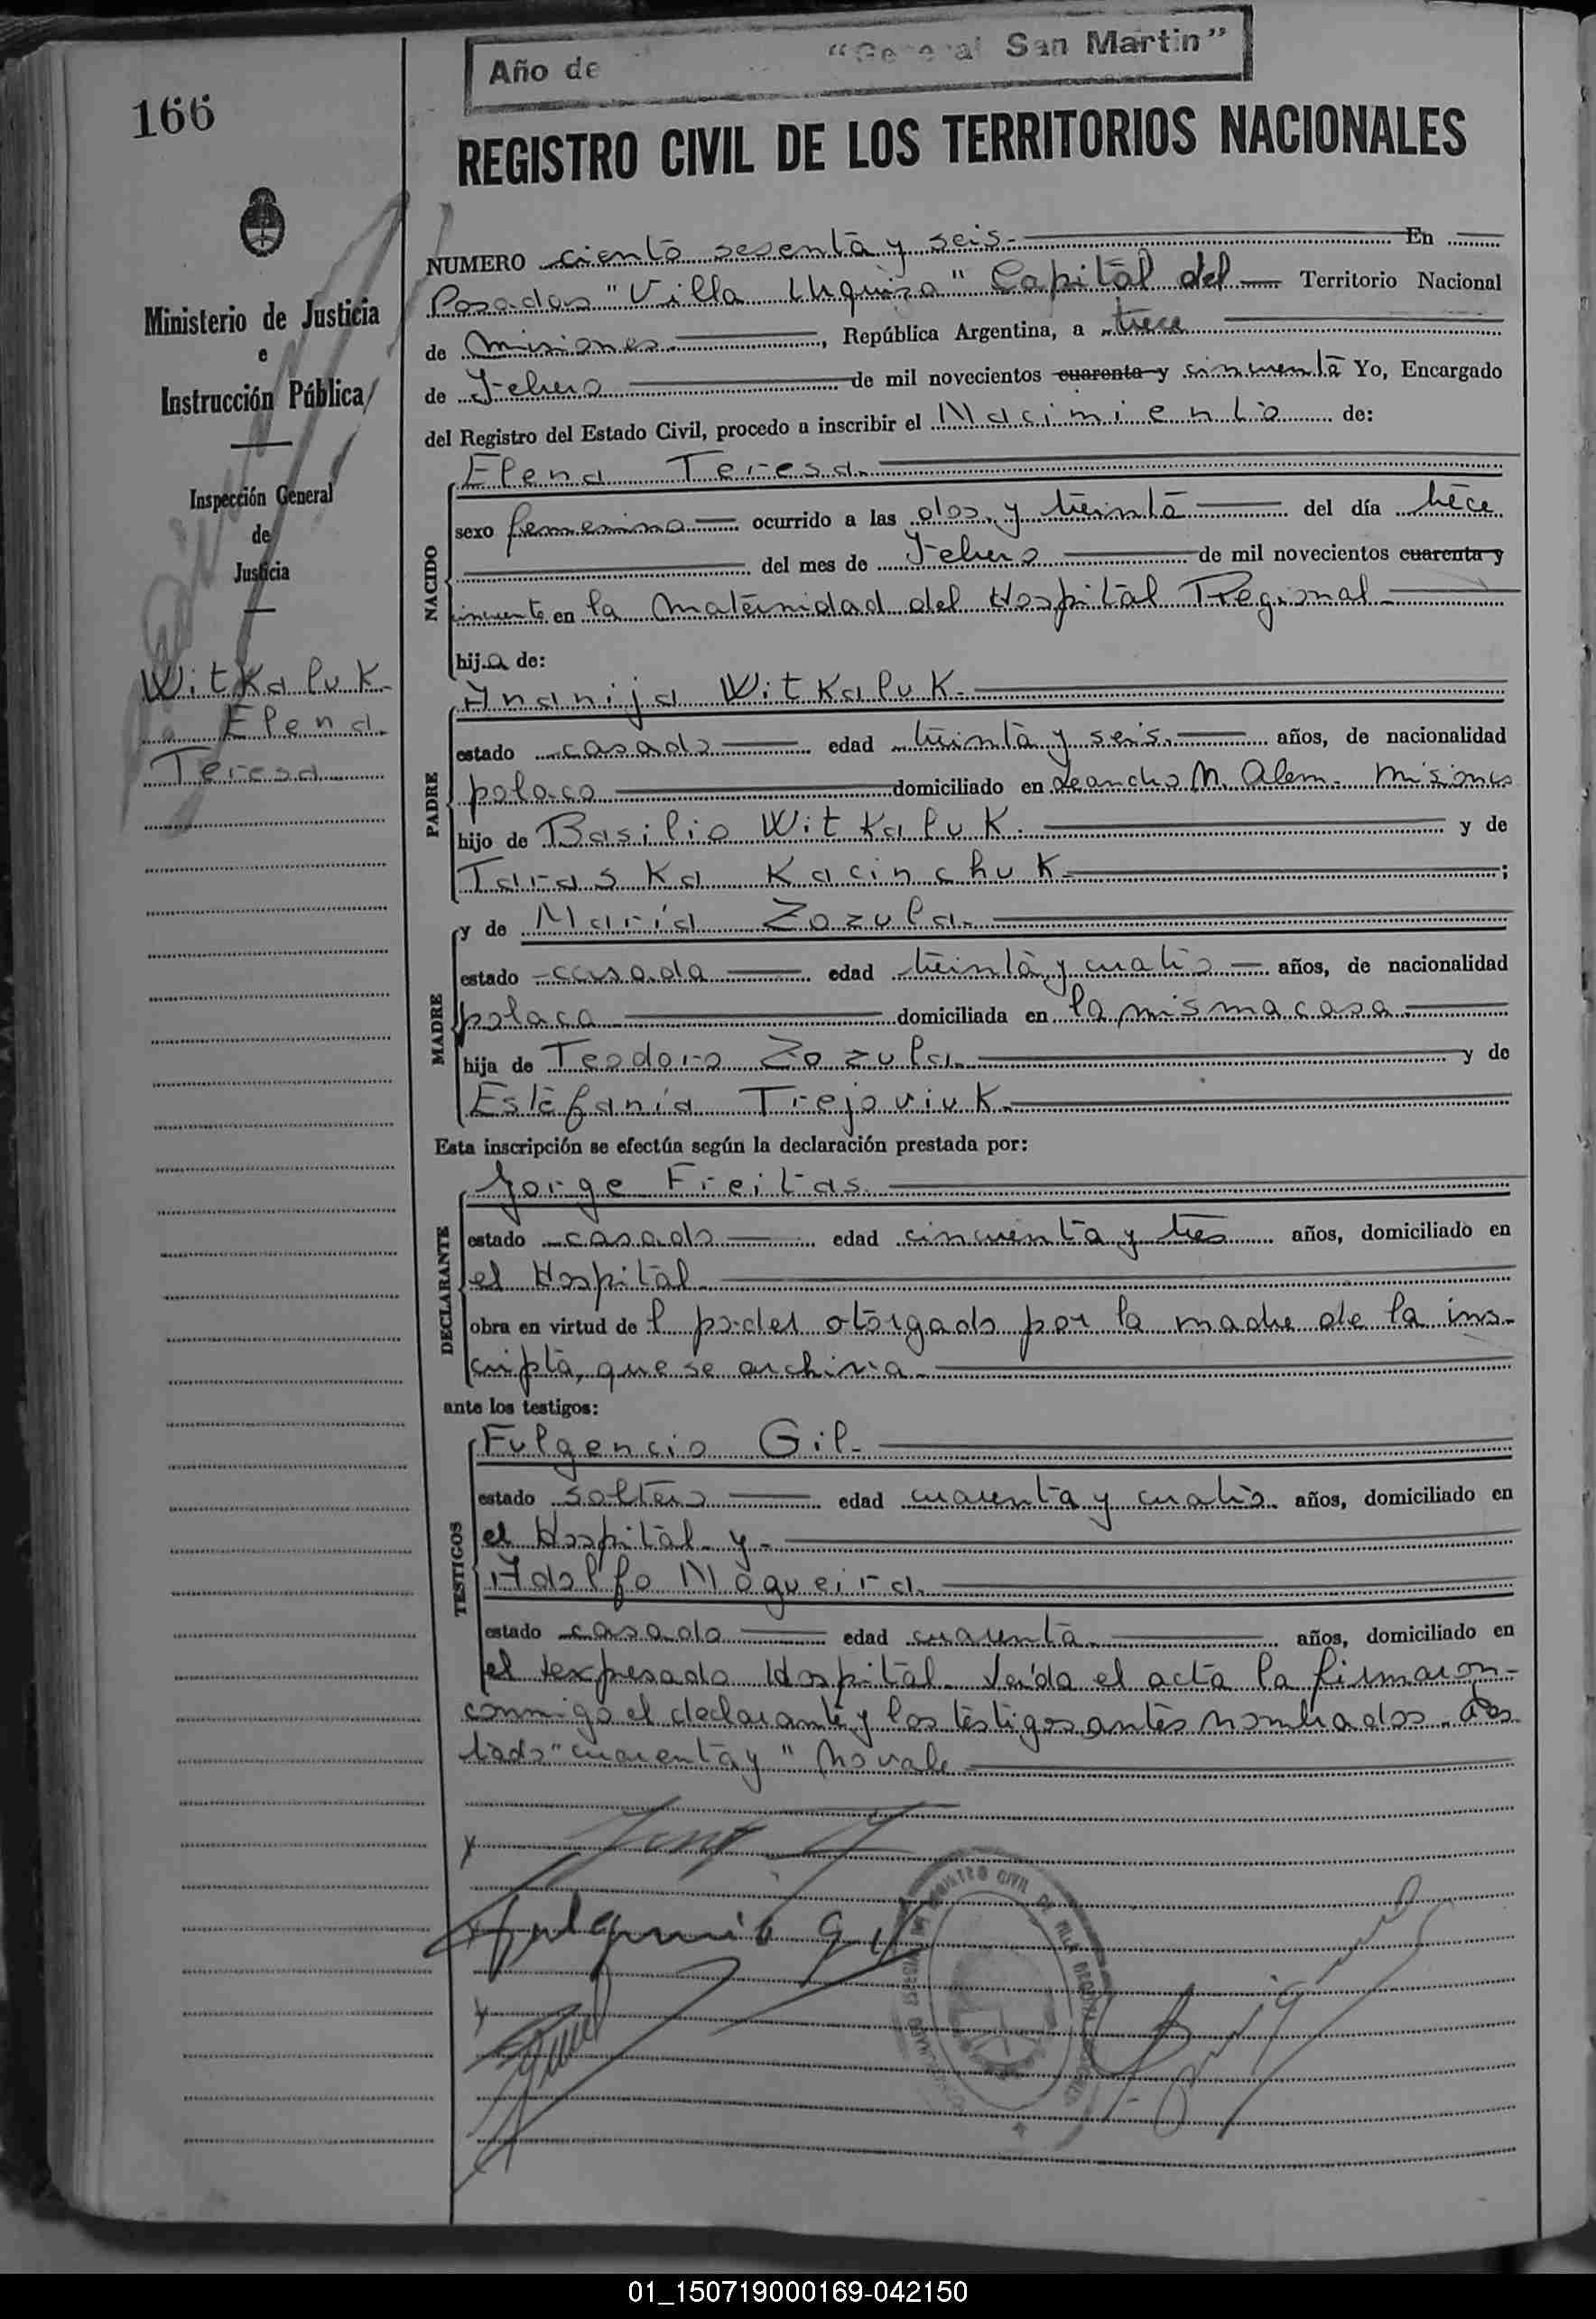 Año de "General San Martin"
166
REGISTRO CIVIL DE LOS TERRITORIOS NACIONALES
Ministerio de Justicia
e
Instrucción Pública
Inspección General
de
Justicia
WitKaluk
Elena
Teresa
NUMERO ciento sesenta y seis.- En
Posadas "Villa Urquiza" Capital del Territorio Nacional
de Misiones, República Argentina, a trece
de Febrero de mil novecientos cuarenta y cincuenta Yo, Encargado
del Registro del Estado Civil, procedo a inscribir el Nacimiento de:
NACIDO
Elena Teresa.
sexo femenino ocurrido a las dos y treinta del día trece
del mes de Febrero de mil novecientos cuarenta y
cincuenta en la Maternidad del Hospital Regional
hija de:
PADRE
Ananija WitKaluK.
estado casado edad treinta y seis. años, de nacionalidad
polaco domiciliado en Leandro N. Alem. Misiones
hijo de Basilio WitKaluK. y de
TarasKa KacinchuK ;
MADRE
y de María Zozula.
estado casada edad treinta y cuatro años, de nacionalidad
polaca domiciliada en la misma casa.
hija de Teodoro Zozula. y de
Estefanía TrejoviuK.
Esta inscripción se efectúa según la declaración prestada por:
DECLARANTE
Jorge Freitas.
estado casado edad cincuenta y tres años, domiciliado en
el Hospital
obra en virtud del poder otorgado por la madre de la ins-
cripta, que se archiva.
ante los testigos:
TESTIGOS
Fulgencio Gil.
estado soltero edad cuarenta y cuatro. años, domiciliado en
el Hospital y
Adolfo Nogueira.
estado casado edad cuarenta años, domiciliado en
el expresado Hospital. Leída el acta la firmaron
conmigo el declarante y los testigos antes nombrados.
tado "cuarenta y" no vale
Fulgencio Gil
REGISTRO CIVIL DE VILLA URQUIZA
01_150719000169-042150